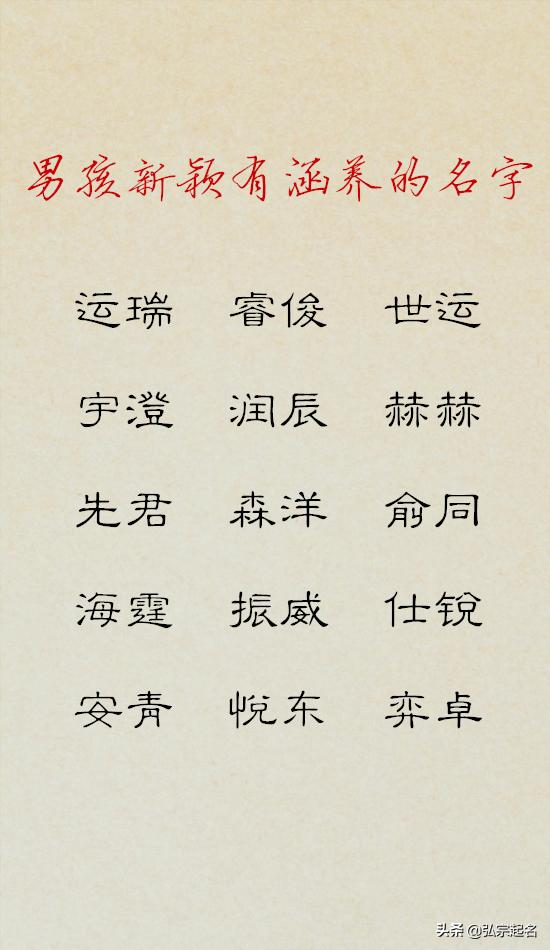 男孩新颖有涵养的名字
运瑞 睿俊 世运
宇澄 润辰 赫赫
先君 森洋 俞同
海霆 振威 仕锐
安青 悦东 弈卓
头条 @弘宗起名